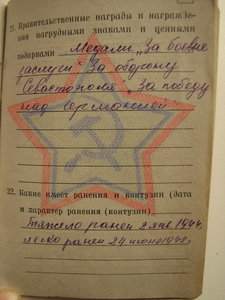 21. Правительственные награды и награжде-
ния нагрудными знаками и ценными
подарками Медали „За боевые
заслуги" „За оборону
Севастополя" „За победу
над Германией"
22. Какие имеет ранения и контузии (дата
и характер ранения (контузии)
Тяжело ранен 2 янв 1944,
легко ранен 24 июня 1942 г.